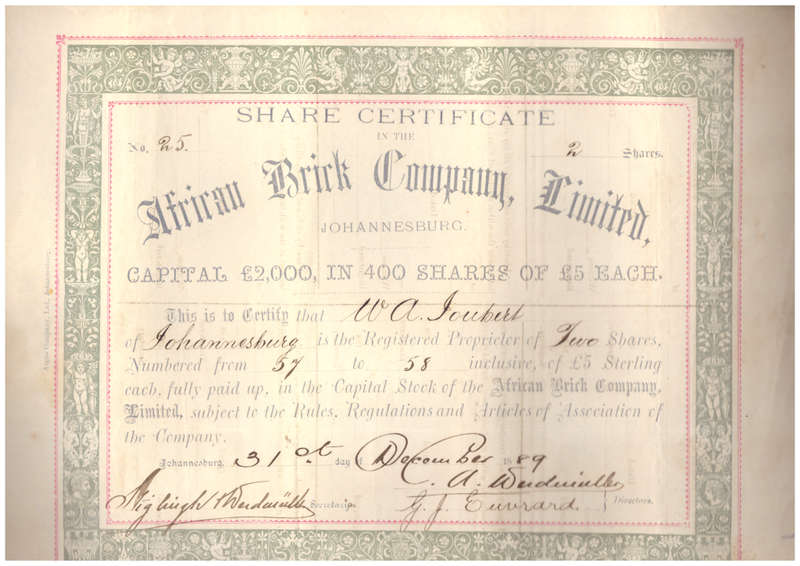 SHARE CERTIFICATE
IN THE
No. 25. 2 Shares.
African Brick Company, Limited,
JOHANNESBURG.
CAPITAL £2,000, IN 400 SHARES OF £5 EACH.
This is to Certify that W A. Joubert
of Johannesburg is the Registered Proprietor of Two Shares,
Numbered from 57 to 58 inclusive, of £5 Sterling
each, fully paid up, in the Capital Stock of the African Brick Company,
Limited, subject to the Rules, Regulations and Articles of Association of
the Company.
Johannesburg, 31st day of December 1889
A. Werdmüller
Niglingh & Werdmüller Secretaries. G. J. Euvrard Directors.